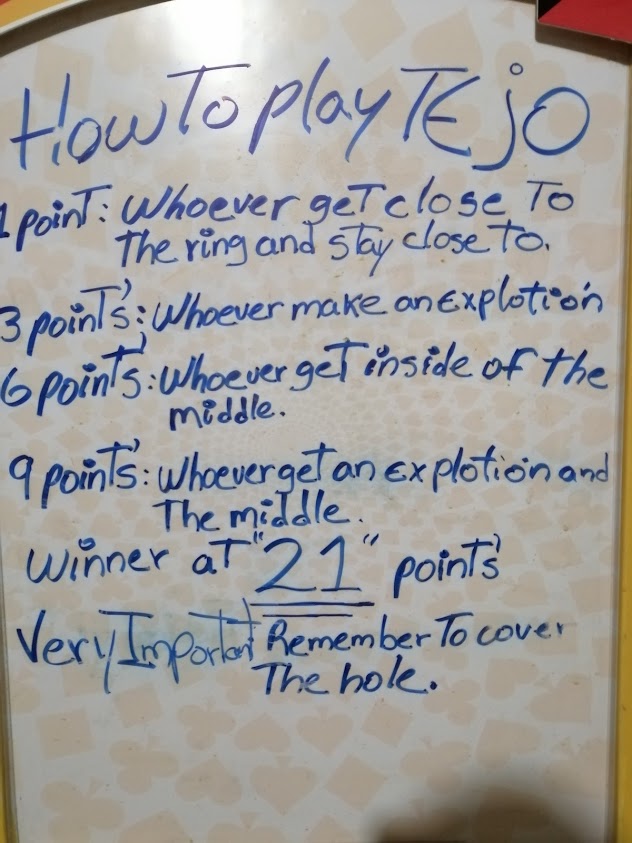 How To play TEjO
1 point: Whoever get close To
The ring and stay close to.
3 point's: Whoever make an Explotion
6 point's: Whoever get inside of the
middle.
9 point's: Whoever get an explotion and
The middle.
Winner at "21" point's
Very Important Remember To cover
The hole.